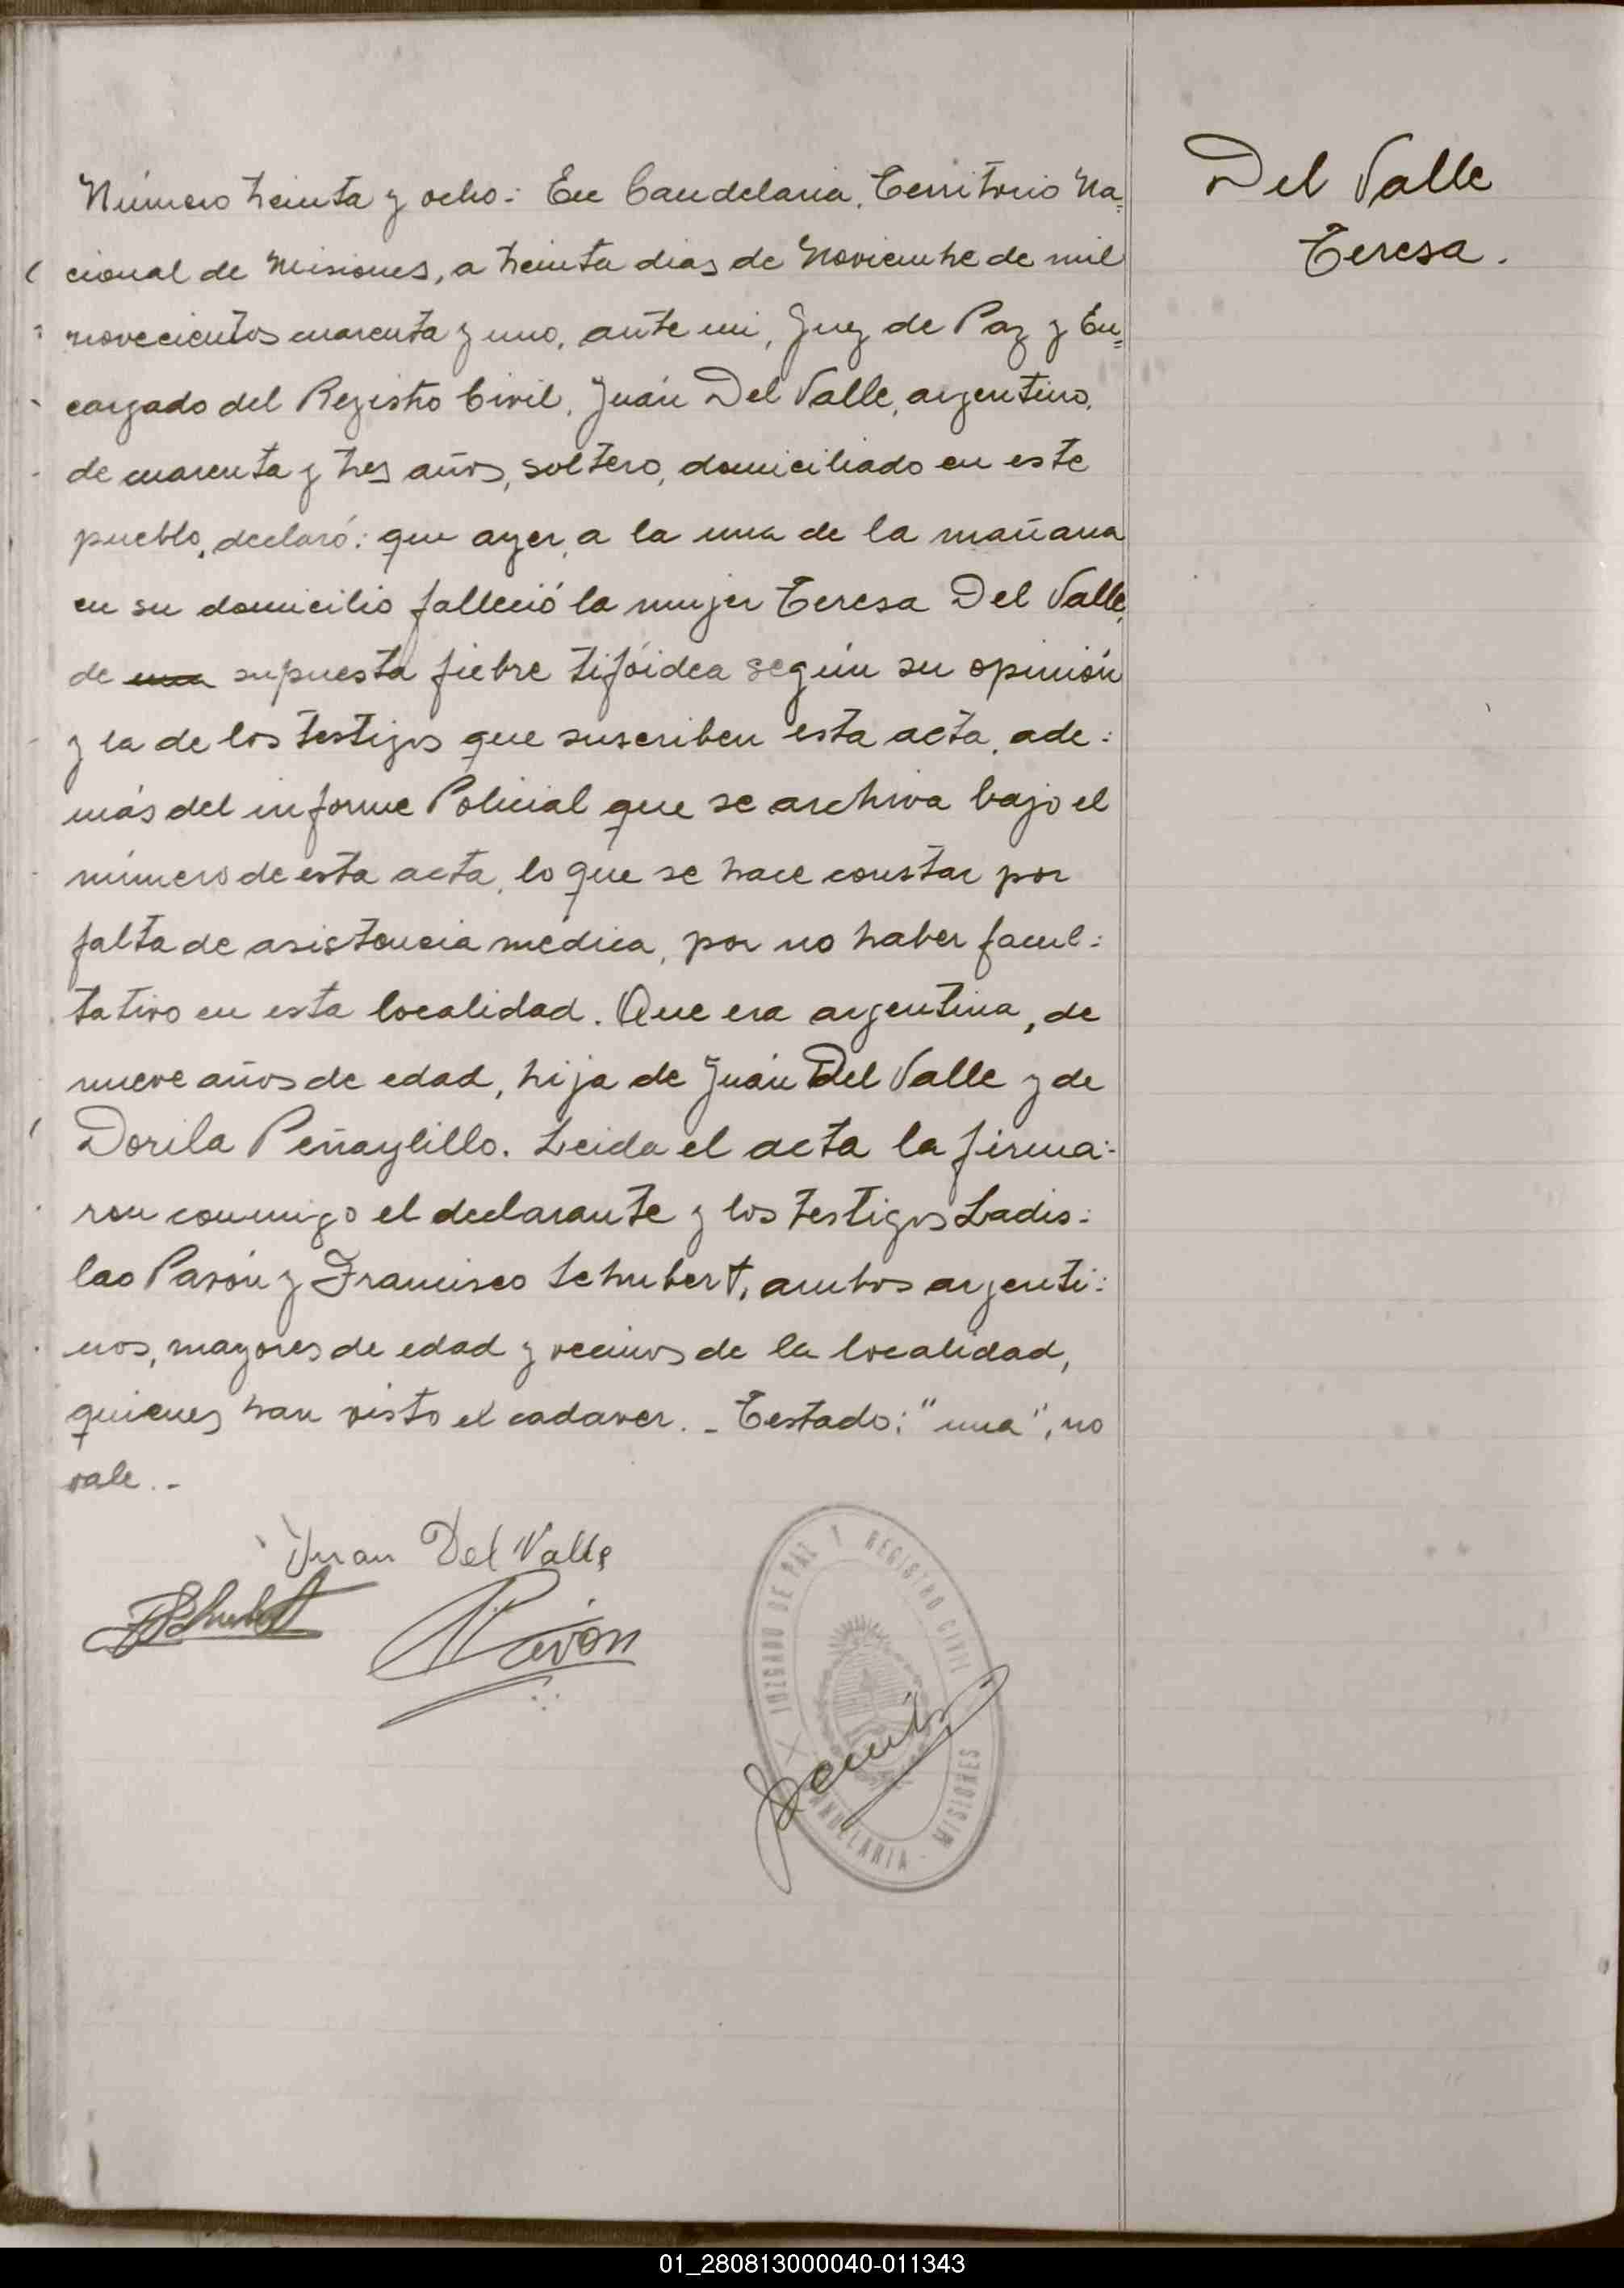 Número treinta y ocho: En Candelaria, Territorio Na=
cional de Misiones, a treinta dias de Noviembre de mil
novecientos cuarenta y uno, ante mi, Juez de Paz y En=
cargado del Registro Civil, Juán Del Valle, argentino,
de cuarenta y tres años, soltero, domiciliado en este
pueblo, declaró: que ayer, a la una de la mañana
en su domicilio falleció la mujer Teresa Del Valle,
de una supuesta fiebre tifóidea según su opinión
y la de los testigos que suscriben esta acta, ade:
más del informe Policial que se archiva bajo el
número de esta acta, lo que se hace constar por
falta de asistencia médica, por no haber facul:
tativo en esta localidad. Que era argentina, de
nueve años de edad, hija de Juán Del Valle y de
Dorila Peñaylillo. Leida el acta la firma:
ron conmigo el declarante y los testigos Ladis:
lao Pavón y Francisco Schubert, ambos argenti:
nos, mayores de edad y vecinos de la localidad,
quienes han visto el cadaver. - Testado: "una", no
vale. -
Del Valle
Teresa.
Juan Del Valle
FSchubert
Pavón
JUZGADO DE PAZ Y REGISTRO CIVIL
CANDELARIA - MISIONES
01_280813000040-011343